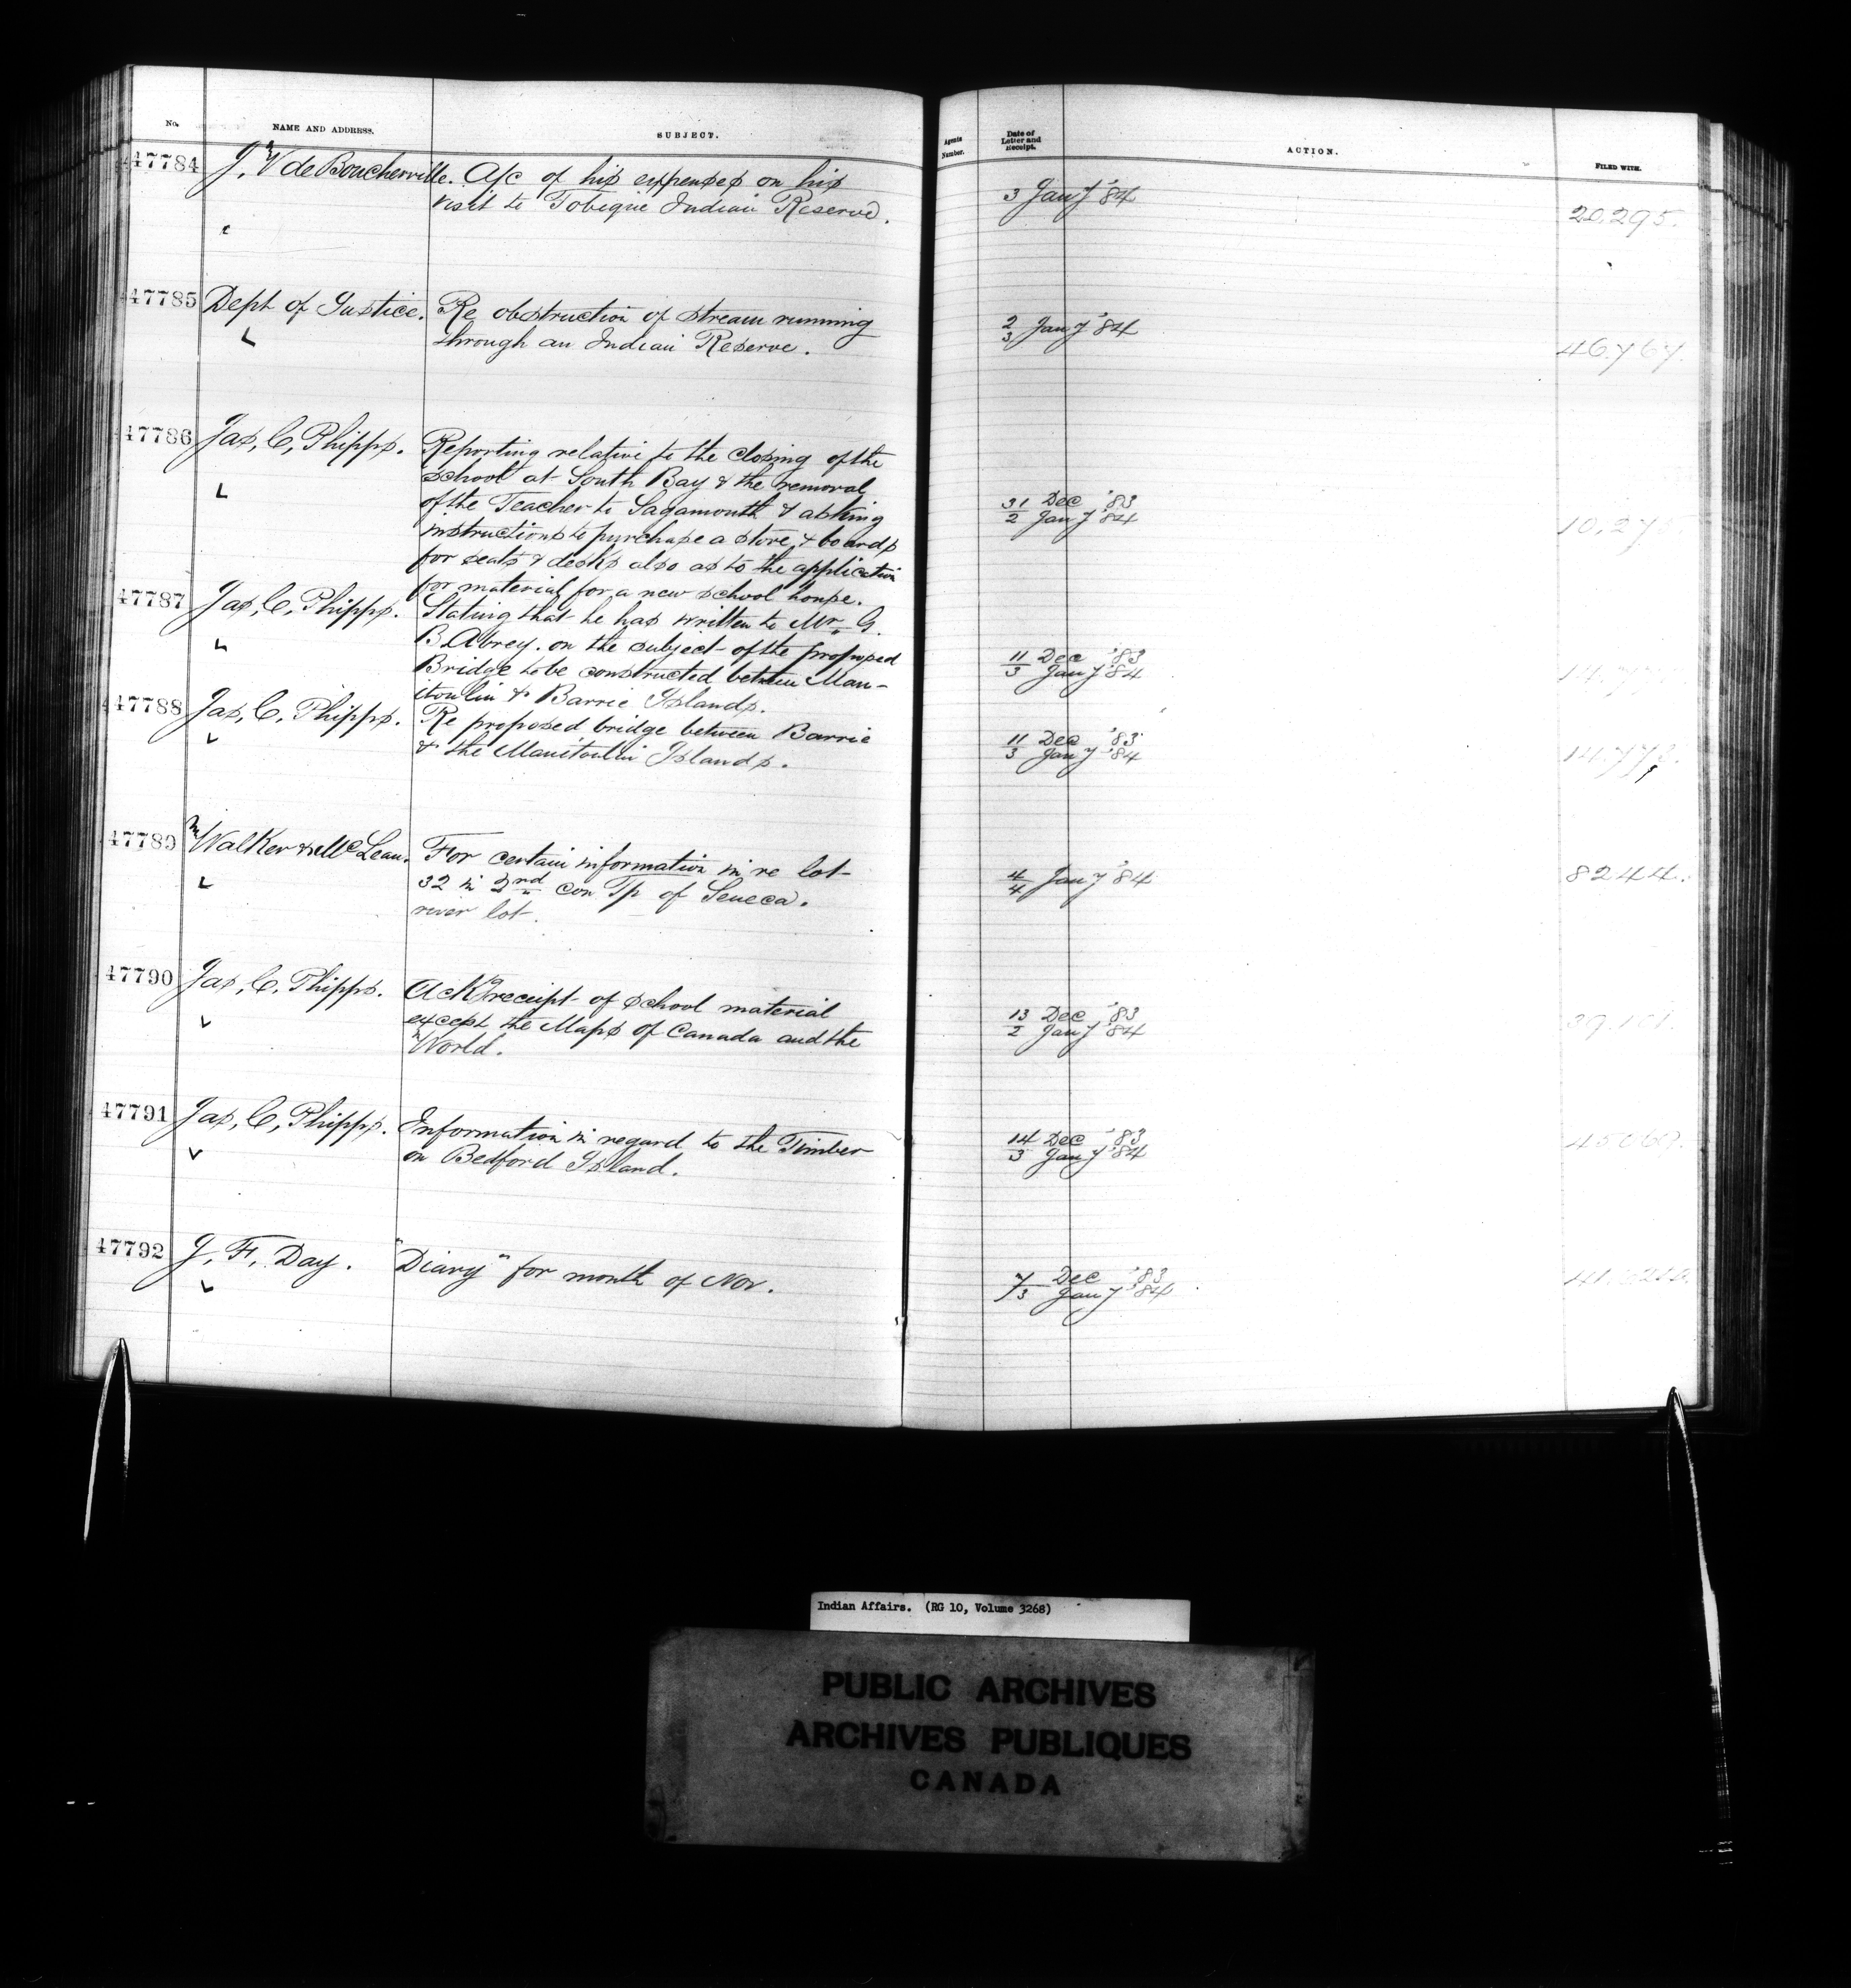 No. NAME AND ADDRESS. SUBJECT. Agents Number. Date of Letter and Receipt. ACTION. FILED WITH.
47784 J. V de Boucherville. A/c of his expenses on his
visit to Tobique Indian Reserve. 3 Jany '84 20.295.
47785 Dept of Justice. Re obstruction of stream running
through an Indian Reserve. 2/3 Jany '84 46.767.
47786 Jas, C, Phipps. Reporting relative to the closing of the
school at South Bay & the removal
of the Teacher to Sagamouth & asking
instructions to purchase a stove, & boards
for seats & desks also as to the application
for material for a new school house. 31 Dec '83
2 Jany '84
47787 Jas, C, Phipps. Stating that he has written to Mr. G.
B. Abrey. on the subject of the proposed
Bridge to be constructed between Man-
itoulin & Barrie Islands. 11 Dec '83
3 Jany '84
47788 Jas, C, Phipps. Re proposed bridge between Barrie
& the Manitoulin Islands. 11 Dec '83
3 Jany '84 14.773.
47789 Walker & McLean. For certain information in re lot
32 in 2nd con Tp of Seneca.
river lot. 4/4 Jany '84 8244.
47790 Jas, C, Phipps. Ackg receipt of school material
except the Maps of Canada and the
World. 13 Dec '83
2 Jany '84
47791 Jas, C, Phipps. Information in regard to the Timber
on Bedford Island. 14 Dec '83
3 Jany '84
47792 J. F. Day. "Diary" for month of Nov. 7 Dec '83
3 Jany '84
Indian Affairs. (RG 10, Volume 3268)
PUBLIC ARCHIVES
ARCHIVES PUBLIQUES
CANADA